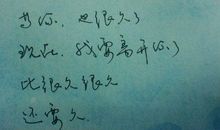 等你，也很久了
现在，我要离开你了
比很久很久
还要久